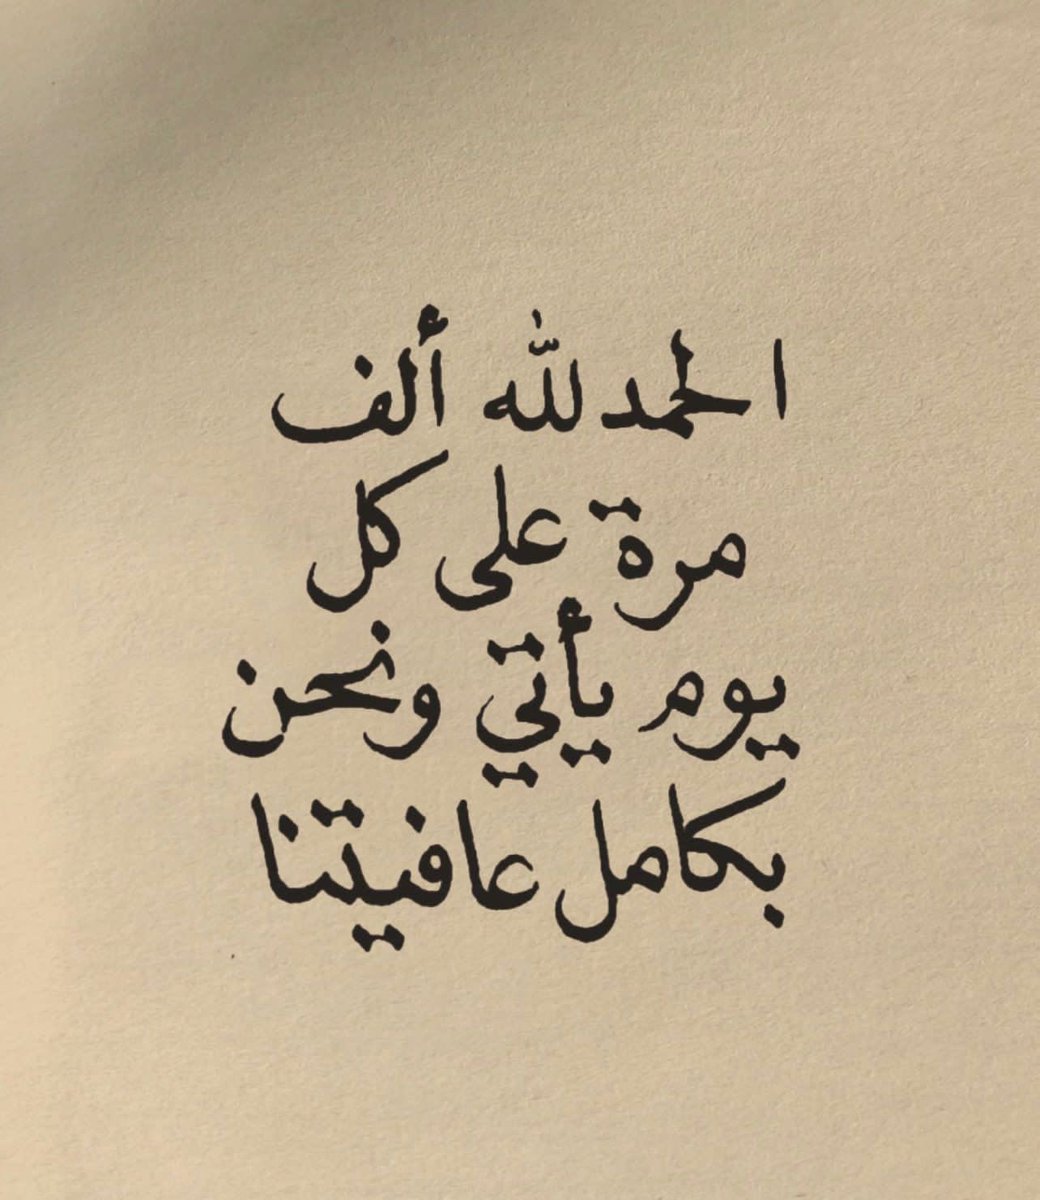 الحمد لله ألف
مرة على كل
يوم يأتي ونحن
بكامل عافيتنا